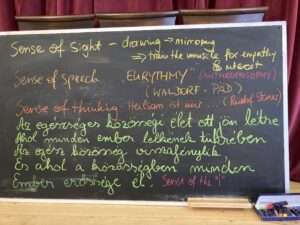 Sense of Sight - drawing → mirroring
⇒ train the muscle for empathy & interest
Sense of Speech "EURYTHMY" (ANTHROPOSOPHY)
(WALDORF-PÄD)
Sense of thinking Heilsam ist nur ... (Rudolf Steiner)
Az egészséges közösségi élet ott jön létre
Ahol minden ember lelkének tükrében
Az egész közösség visszafénylik
És ahol a közösségben minden
Ember erőssége él. Sense of the "I"